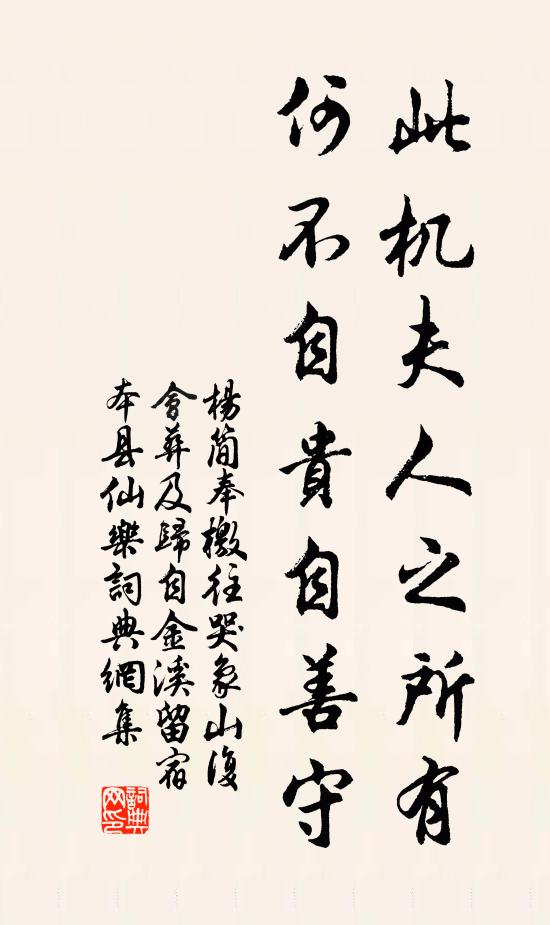 此机夫人之所有
何不自貴自善守
楊简奉檄往哭象山復
會葬及歸自金溪留宿
本县仙樂詞典網集
詞典
网印